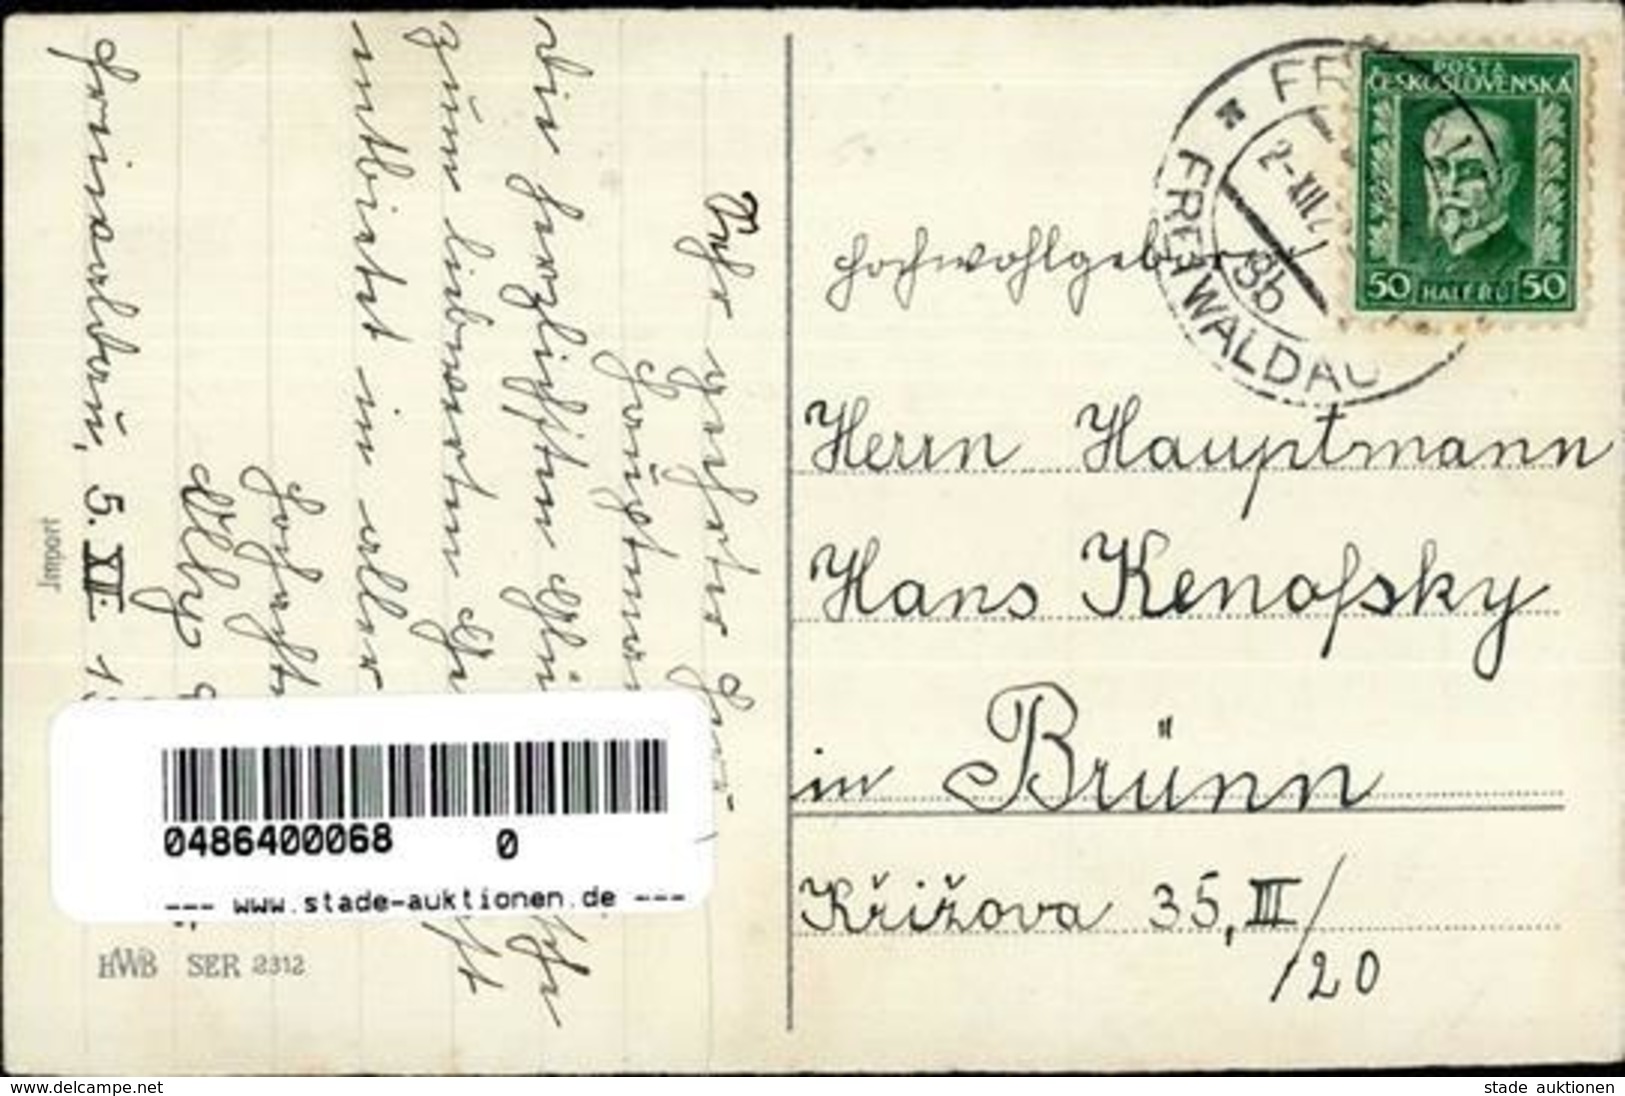 Sehr geehrter Herr
Hauptman
Die herzlichsten Glü
zum liebwerten
entbietet in aller
Hochacht
Olly
Freiwaldau, 5. XII. 1
Import
0486400068 0
--- www.stade-auktionen.de ---
HWB SER 2312
POSTA
ČESKOSLOVENSKÁ
50 HALÉŘŮ 50
FR
2-XII.
3b
FREIWALDAU
Hochwohlgeboren
Herrn Hauptmann
Hans Kenofsky
in Brünn
Křižova 35, III/
/20
www.delcampe.net
stade auktionen